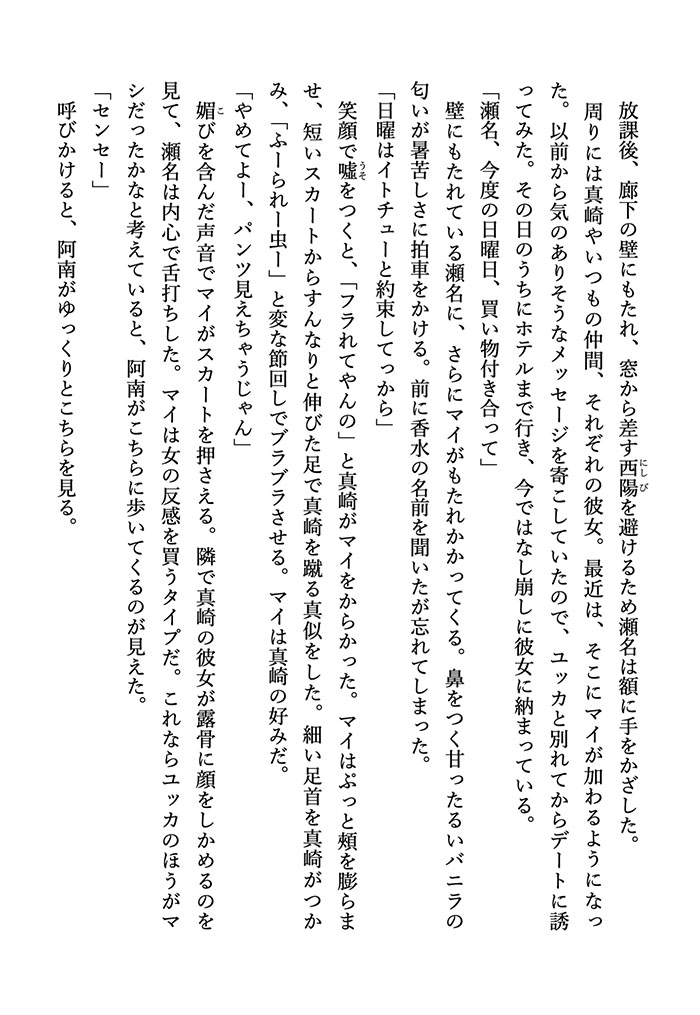 放課後、廊下の壁にもたれ、窓から差す西陽を避けるため瀬名は額に手をかざした。
周りには真崎やいつもの仲間、それぞれの彼女。最近は、そこにマイが加わるようになっ
た。以前から気のありそうなメッセージを寄こしていたので、ユッカと別れてからデートに誘
ってみた。その日のうちにホテルまで行き、今ではなし崩しに彼女に納まっている。
「瀬名、今度の日曜日、買い物付き合って」
壁にもたれている瀬名に、さらにマイがもたれかかってくる。鼻をつく甘ったるいバニラの
匂いが暑苦しさに拍車をかける。前に香水の名前を聞いたが忘れてしまった。
「日曜はイトチューと約束してっから」
笑顔で嘘をつくと、「フラれてやんの」と真崎がマイをからかった。マイはぷっと頰を膨らま
せ、短いスカートからすんなりと伸びた足で真崎を蹴る真似をした。細い足首を真崎がつか
み、「ふーられー虫ー」と変な節回しでブラブラさせる。マイは真崎の好みだ。
「やめてよー、パンツ見えちゃうじゃん」
媚びを含んだ声音でマイがスカートを押さえる。隣で真崎の彼女が露骨に顔をしかめるのを
見て、瀬名は内心で舌打ちした。マイは女の反感を買うタイプだ。これならユッカのほうがマ
シだったかなと考えていると、阿南がこちらに歩いてくるのが見えた。
「センセー」
呼びかけると、阿南がゆっくりとこちらを見る。